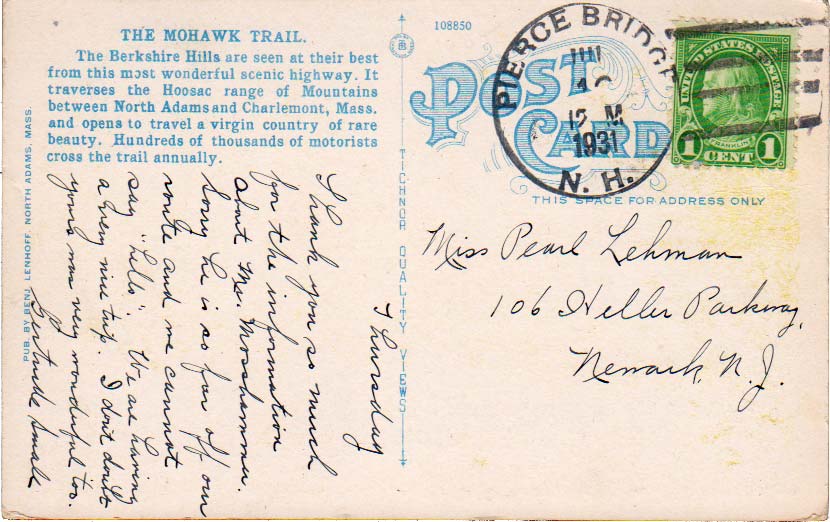 THE MOHAWK TRAIL.
The Berkshire Hills are seen at their best
from this most wonderful scenic highway. It
traverses the Hoosac range of Mountains
between North Adams and Charlemont, Mass.
and opens to travel a virgin country of rare
beauty. Hundreds of thousands of motorists
cross the trail annually.
PUB. BY BENJ. LENHOFF, NORTH ADAMS, MASS.
Thursday
Thank you so much
for the information
about Mr.
Sorry he is so far off our
route and we cannot
say "hello". We are having
a very nice trip. I don't doubt
yours was very wonderful too.
Gertrude Small
TICHNOR QUALITY VIEWS
108850
POST
CARD
THIS SPACE FOR ADDRESS ONLY
PIERCE BRIDGE
12 M
1931
N. H.
UNITED STATES POSTAGE
FRANKLIN
1 CENT 1
Miss Pearl Lehman
106 Heller Parkway,
Newark, N. J.